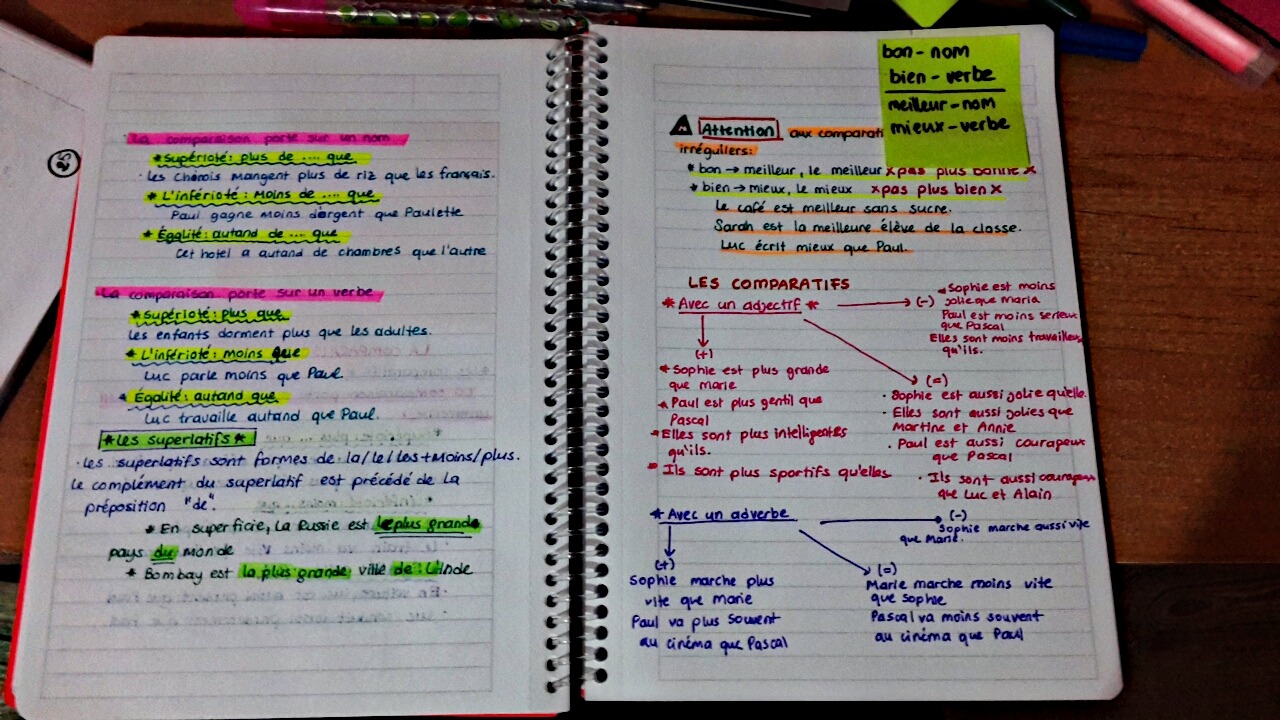 La comparaison porte sur un nom
*Supérioté: plus de .... que
· Les Chinois mangent plus de riz que les français.
* L'infériorité: Moins de .... que
Paul gagne moins d'argent que Paulette
* Égalité: autand de .... que
Cet hotel a autand de chambres que l'autre
· La comparaison porte sur un verbe
*Supérioté: plus que
Les enfants dorment plus que les adultes.
* L'inférioté: moins que
Luc parle moins que Paul.
* Égalité: autand que
Luc travaille autand que Paul.
*Les superlatifs*
· Les superlatifs sont formes de la/le/les+moins/plus.
Le complément du superlatif est précédé de la
préposition "de".
* En superficie, La Russie est le plus grande
pays du monde
* Bombay est la plus grande ville de l'Inde
25
bon - nom
bien - verbe
meilleur - nom
mieux - verbe
Attention aux comparati
irréguliers:
* bon → meilleur, le meilleur x pas plus bonne x
* bien → mieux, le mieux x pas plus bien x
Le café est meilleur sans sucre.
Sarah est la meilleure élève de la classe.
Luc écrit mieux que Paul.
LES COMPARATIFS
* Avec un adjectif *
(-)
Sophie est moins
jolie que maria
Paul est moins serieux
que Pascal
Elles sont moins travailleu
qu'ils.
(+)
* Sophie est plus grande
que marie
* Paul est plus gentil que
Pascal
* Elles sont plus intelligentes
qu'ils.
* Ils sont plus sportifs qu'elles
(=)
· Sophie est aussi jolie qu'elle.
· Elles sont aussi jolies que
Martine et Annie
· Paul est aussi courapeux
que Pascal
· Ils sont aussi courapeux
que Luc et Alain
* Avec un adverbe
(-)
Sophie marche aussi vite
que Marie.
(+)
Sophie marche plus
vite que marie
Paul va plus souvent
au cinéma que Pascal
(=)
Marie marche moins vite
que sophie
Pascal va moins souvent
au cinéma que Paul